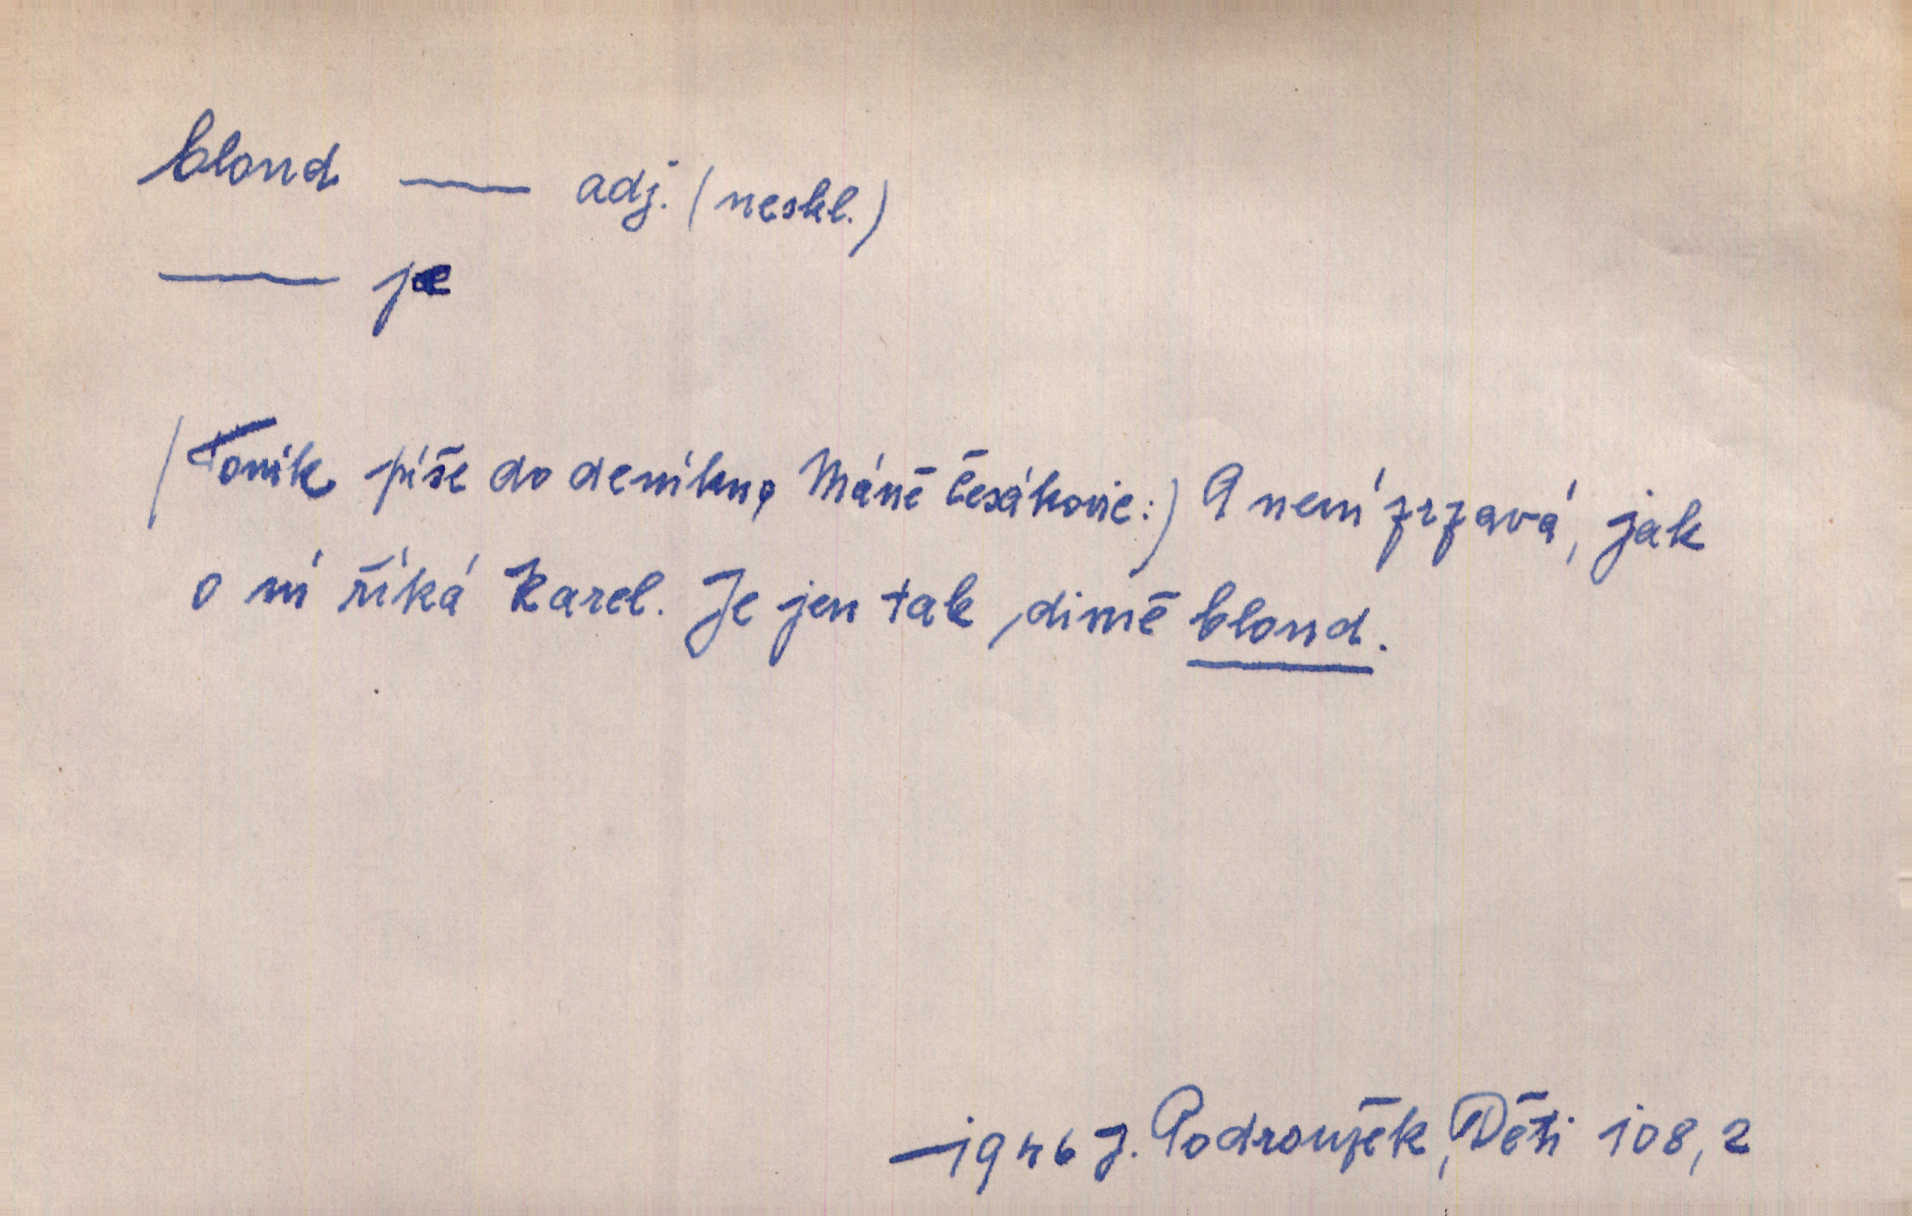 blond — adj. (neskl.)
— je
(Toník píše do deníku o Máně Česákovic:) A není zrzavá, jak
o ní říká Karel. Je jen tak divně blond.
— 1946 J. Podroužek, Děti 108, 2